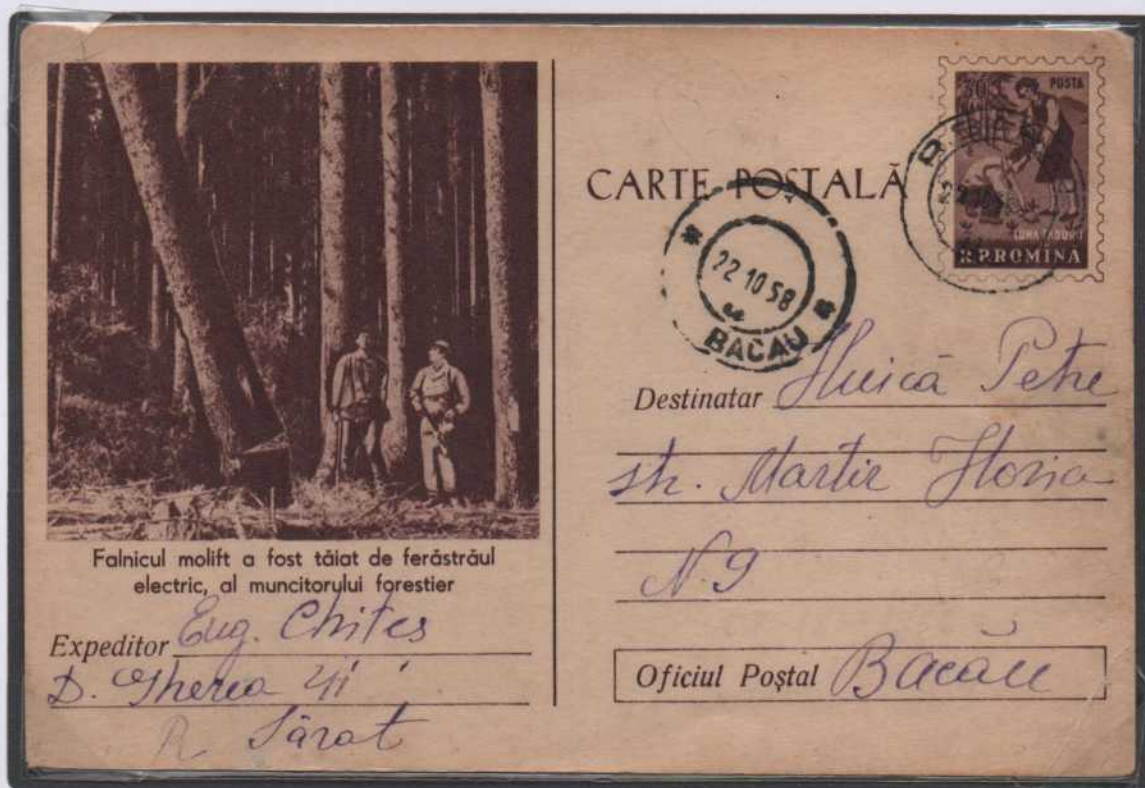 Falnicul molift a fost tăiat de ferăstrăul
electric, al muncitorului forestier
Expeditor Eug. Chites
D. Gherea 41
R Sărat
CARTE POȘTALĂ
30 POSTA
LUNA PĂDURII
R.P.ROMINĂ
22 10 58
BACĂU
Destinatar Huică Petre
str. Martir Horia
N. 9
Oficiul Poștal Bacău